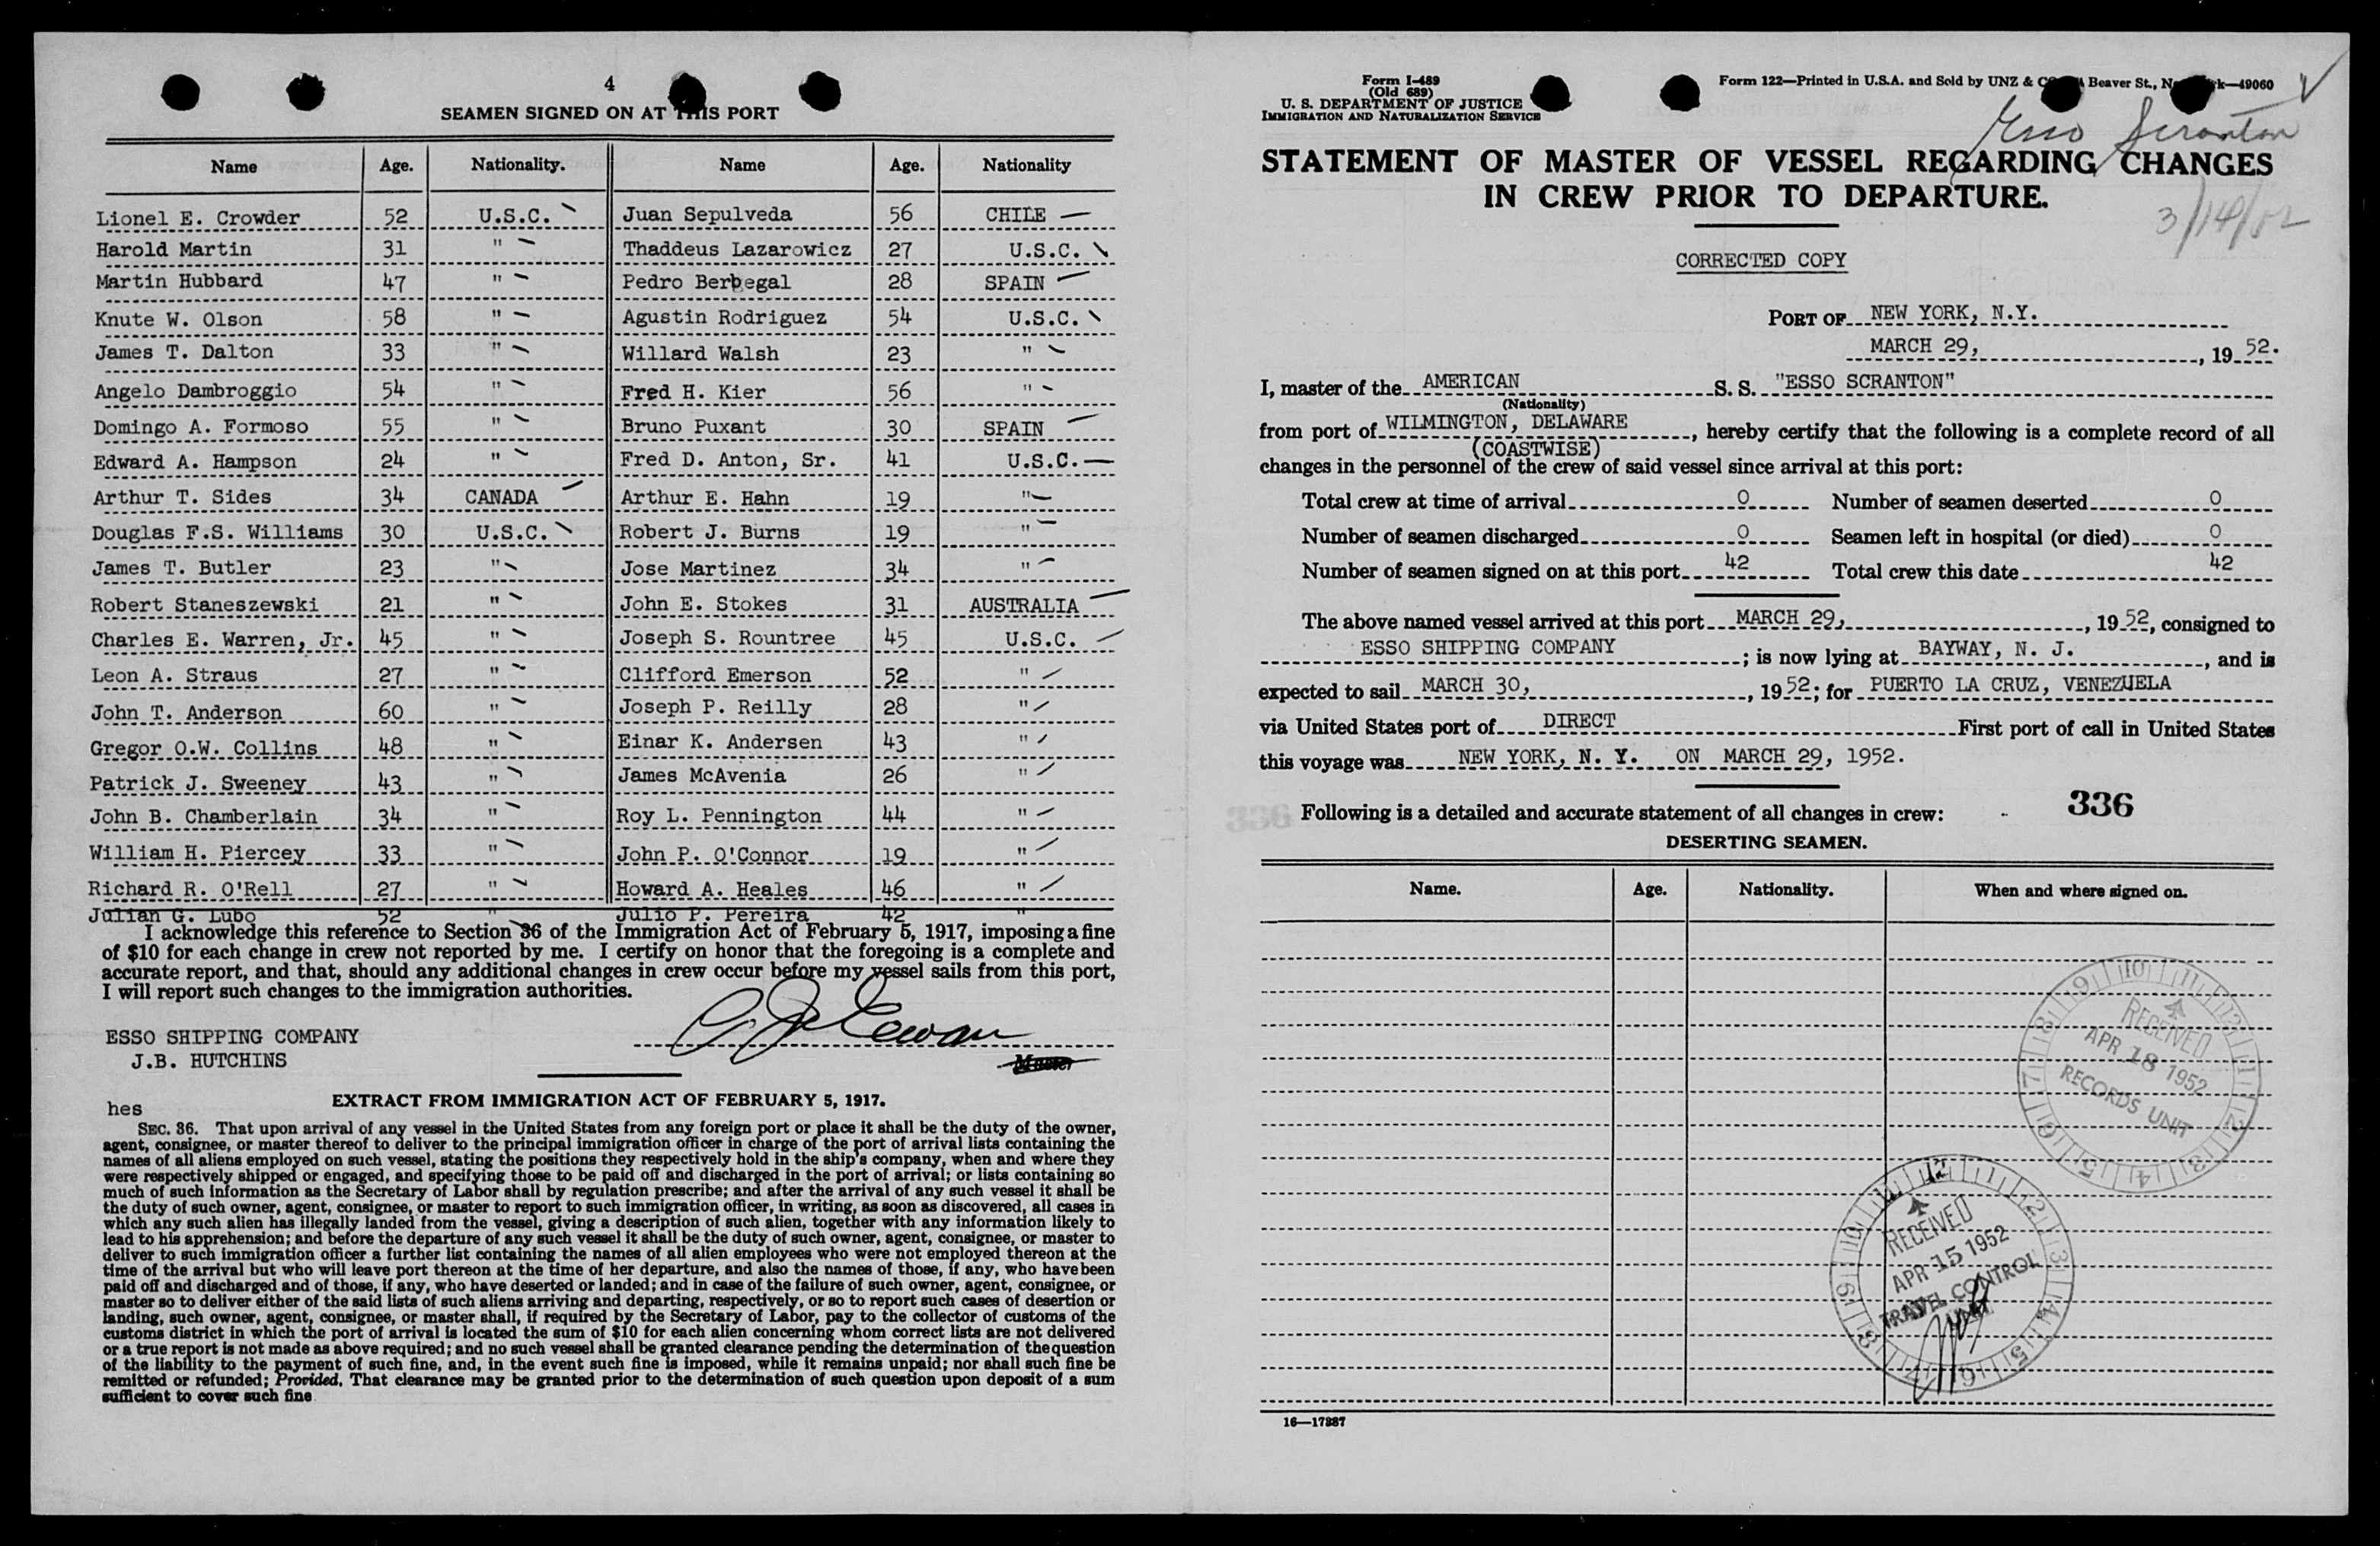 4
SEAMEN SIGNED ON AT THIS PORT
Name Age. Nationality. Name Age. Nationality
Lionel E. Crowder 52 U.S.C. Juan Sepulveda 56 CHILE
Harold Martin 31 " Thaddeus Lazarowicz 27 U.S.C.
Martin Hubbard 47 " Pedro Berbegal 28 SPAIN
Knute W. Olson 58 " Agustin Rodriguez 54 U.S.C.
James T. Dalton 33 " Willard Walsh 23 "
Angelo Dambroggio 54 " Fred H. Kier 56 "
Domingo A. Formoso 55 " Bruno Puxant 30 SPAIN
Edward A. Hampson 24 " Fred D. Anton, Sr. 41 U.S.C.
Arthur T. Sides 34 CANADA Arthur E. Hahn 19 "
Douglas F.S. Williams 30 U.S.C. Robert J. Burns 19 "
James T. Butler 23 " Jose Martinez 34 "
Robert Staneszewski 21 " John E. Stokes 31 AUSTRALIA
Charles E. Warren, Jr. 45 " Joseph S. Rountree 45 U.S.C.
Leon A. Straus 27 " Clifford Emerson 52 "
John T. Anderson 60 " Joseph P. Reilly 28 "
Gregor O.W. Collins 48 " Einar K. Andersen 43 "
Patrick J. Sweeney 43 " James McAvenia 26 "
John B. Chamberlain 34 " Roy L. Pennington 44 "
William H. Piercey 33 " John P. O'Connor 19 "
Richard R. O'Rell 27 " Howard A. Heales 46 "
Julian G. Lubo 52 " Julio P. Pereira 42 "
I acknowledge this reference to Section 36 of the Immigration Act of February 5, 1917, imposing a fine
of $10 for each change in crew not reported by me. I certify on honor that the foregoing is a complete and
accurate report, and that, should any additional changes in crew occur before my vessel sails from this port,
I will report such changes to the immigration authorities.
ESSO SHIPPING COMPANY
J.B. HUTCHINS
Master
hes
EXTRACT FROM IMMIGRATION ACT OF FEBRUARY 5, 1917.
SEC. 36. That upon arrival of any vessel in the United States from any foreign port or place it shall be the duty of the owner,
agent, consignee, or master thereof to deliver to the principal immigration officer in charge of the port of arrival lists containing the
names of all aliens employed on such vessel, stating the positions they respectively hold in the ship's company, when and where they
were respectively shipped or engaged, and specifying those to be paid off and discharged in the port of arrival; or lists containing so
much of such information as the Secretary of Labor shall by regulation prescribe; and after the arrival of any such vessel it shall be
the duty of such owner, agent, consignee, or master to report to such immigration officer, in writing, as soon as discovered, all cases in
which any such alien has illegally landed from the vessel, giving a description of such alien, together with any information likely to
lead to his apprehension; and before the departure of any such vessel it shall be the duty of such owner, agent, consignee, or master to
deliver to such immigration officer a further list containing the names of all alien employees who were not employed thereon at the
time of the arrival but who will leave port thereon at the time of her departure, and also the names of those, if any, who have been
paid off and discharged and of those, if any, who have deserted or landed; and in case of the failure of such owner, agent, consignee, or
master so to deliver either of the said lists of such aliens arriving and departing, respectively, or so to report such cases of desertion or
landing, such owner, agent, consignee, or master shall, if required by the Secretary of Labor, pay to the collector of customs of the
customs district in which the port of arrival is located the sum of $10 for each alien concerning whom correct lists are not delivered
or a true report is not made as above required; and no such vessel shall be granted clearance pending the determination of the question
of the liability to the payment of such fine, and, in the event such fine is imposed, while it remains unpaid; nor shall such fine be
remitted or refunded; Provided, That clearance may be granted prior to the determination of such question upon deposit of a sum
sufficient to cover such fine
Form I-489
(Old 689)
U. S. DEPARTMENT OF JUSTICE
IMMIGRATION AND NATURALIZATION SERVICE
Form 122—Printed in U.S.A. and Sold by UNZ & Beaver St., 49060
Esso Scranton
STATEMENT OF MASTER OF VESSEL REGARDING CHANGES
IN CREW PRIOR TO DEPARTURE.
3/14/52
CORRECTED COPY
PORT OF NEW YORK, N.Y.
MARCH 29, , 19 52.
I, master of the AMERICAN S. S. "ESSO SCRANTON"
(Nationality)
from port of WILMINGTON, DELAWARE , hereby certify that the following is a complete record of all
(COASTWISE)
changes in the personnel of the crew of said vessel since arrival at this port:
Total crew at time of arrival 0 Number of seamen deserted 0
Number of seamen discharged 0 Seamen left in hospital (or died) 0
Number of seamen signed on at this port 42 Total crew this date 42
The above named vessel arrived at this port MARCH 29, , 19 52, consigned to
ESSO SHIPPING COMPANY ; is now lying at BAYWAY, N. J. , and is
expected to sail MARCH 30, , 19 52; for PUERTO LA CRUZ, VENEZUELA
via United States port of DIRECT First port of call in United States
this voyage was NEW YORK, N. Y. ON MARCH 29, 1952.
Following is a detailed and accurate statement of all changes in crew: 336
DESERTING SEAMEN.
Name. Age. Nationality. When and where signed on.
RECEIVED
APR 18 1952
RECORDS UNIT
RECEIVED
APR 15 1952
TRAVEL CONTROL
UNIT
16—17887